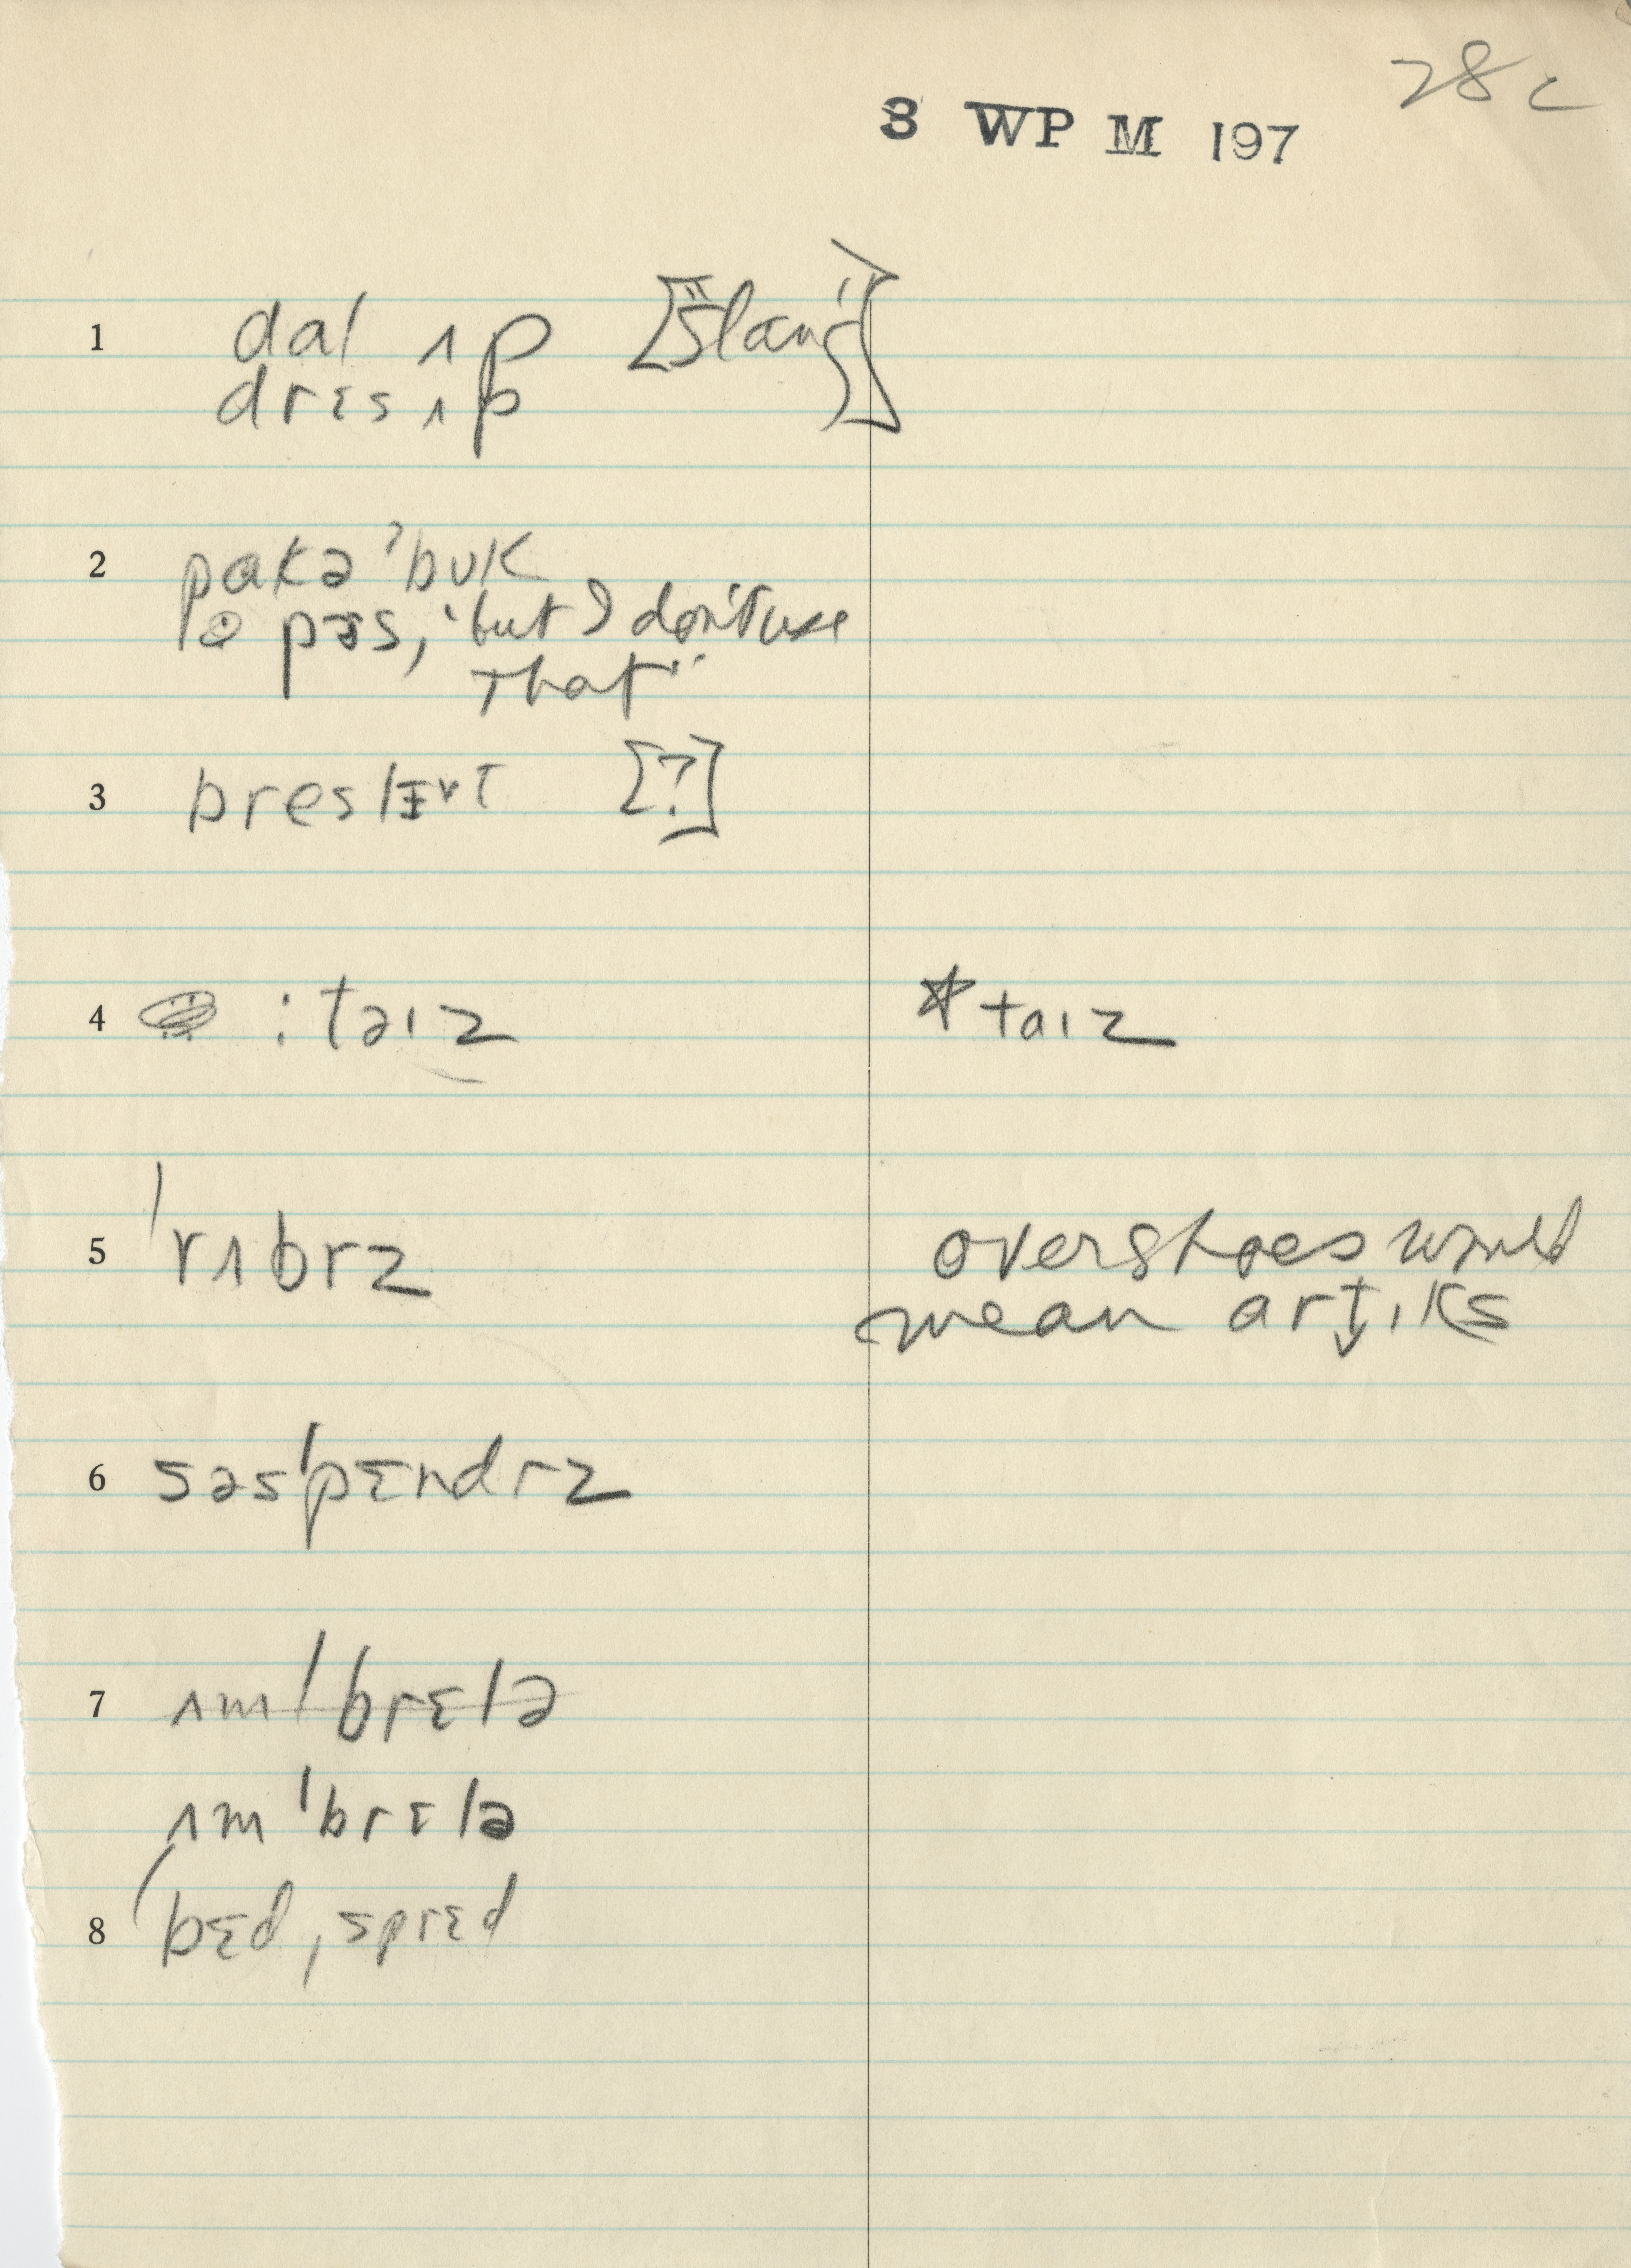 28c
3 WP M 197
1 dal ʌp ["Slang"]
dres ʌp
2 pɑkə ˈbʊk
pɜs, "but I don't use
that"
3 breslɪt [?]
4 : taɪz *taɪz
5 ˈrʌbrz overshoes would
mean artɪks
6 səsˈpɛndrz
7 ʌmˈbrɛlə
ʌmˈbrɛlə
8 ˈbɛdˌsprɛd